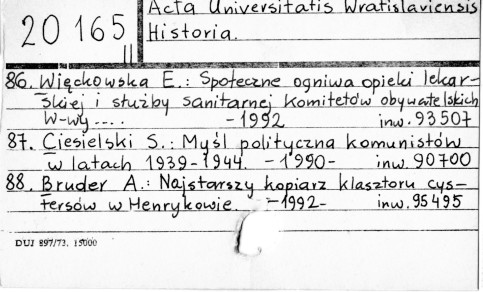 20 165
II
Acta Universitatis Wratislaviensis
Historia.
86. Więckowska E.: Społeczne ogniwa opieki lekar-
skiej i służby sanitarnej Komitetów obywatelskich
W-wy .... -1992 inw. 93507
87. Ciesielski S.: Myśl polityczna komunistów
w latach 1939-1944. -1990- inw. 90700
88. Bruder A.: Najstarszy kopiarz klasztoru cys-
tersów w Henrykowie. -1992- inw. 95495
DUJ 897/73. 15000